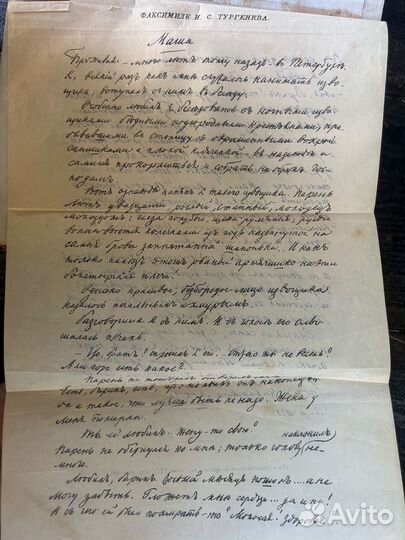 ФАКСИМИЛЕ И. С. ТУРГЕНЕВА.
Маша
Проживая - много лет тому назад - в Петербур-
ге, всякий раз как мне случалось нанимать изво-
щика, вступал с ним в беседу.
Особенно любил я беседовать с ночными изво-
щиками, бедными подгородными крестьянами, при-
бывавшими в столицу с окрашенными вохрой
санишками и плохой клячонкой - в надежде и
самим прокормиться и собрать на оброк гос-
подам.
Вот однажды нанял я такого извощика. Парень
лет двадцати, рослый, статный, молодец
молодцом; глаза голубые, щеки румяные; русые
волосы вьются колечками из-под надвинутой на
самые брови заплатанной шапоньки. И как
только налез этот рваный армячишко на эти
богатырские плеча!
Однако красивое, безбородое лицо извощика
казалось печальным и хмурым.
Разговорился я с ним. И в голосе его слы-
шалась печаль.
- Что, брат? спросил я его. - Отчего ты не весел?
Али горе есть какое?
Парень не
Есть, барин, есть, промолвил он наконец.
Да и такое, что лучше быть не надо. Жена у
меня померла.
Ты её любил... жену-то свою?
Парень не обернулся ко мне; только голову наклонил
немного.
Любил, барин. Восьмой месяц пошел... а не
могу забыть. Гложет мне сердце... да и ну!
И с чего ей было помирать-то? Молодая! здоровая!..
Avito